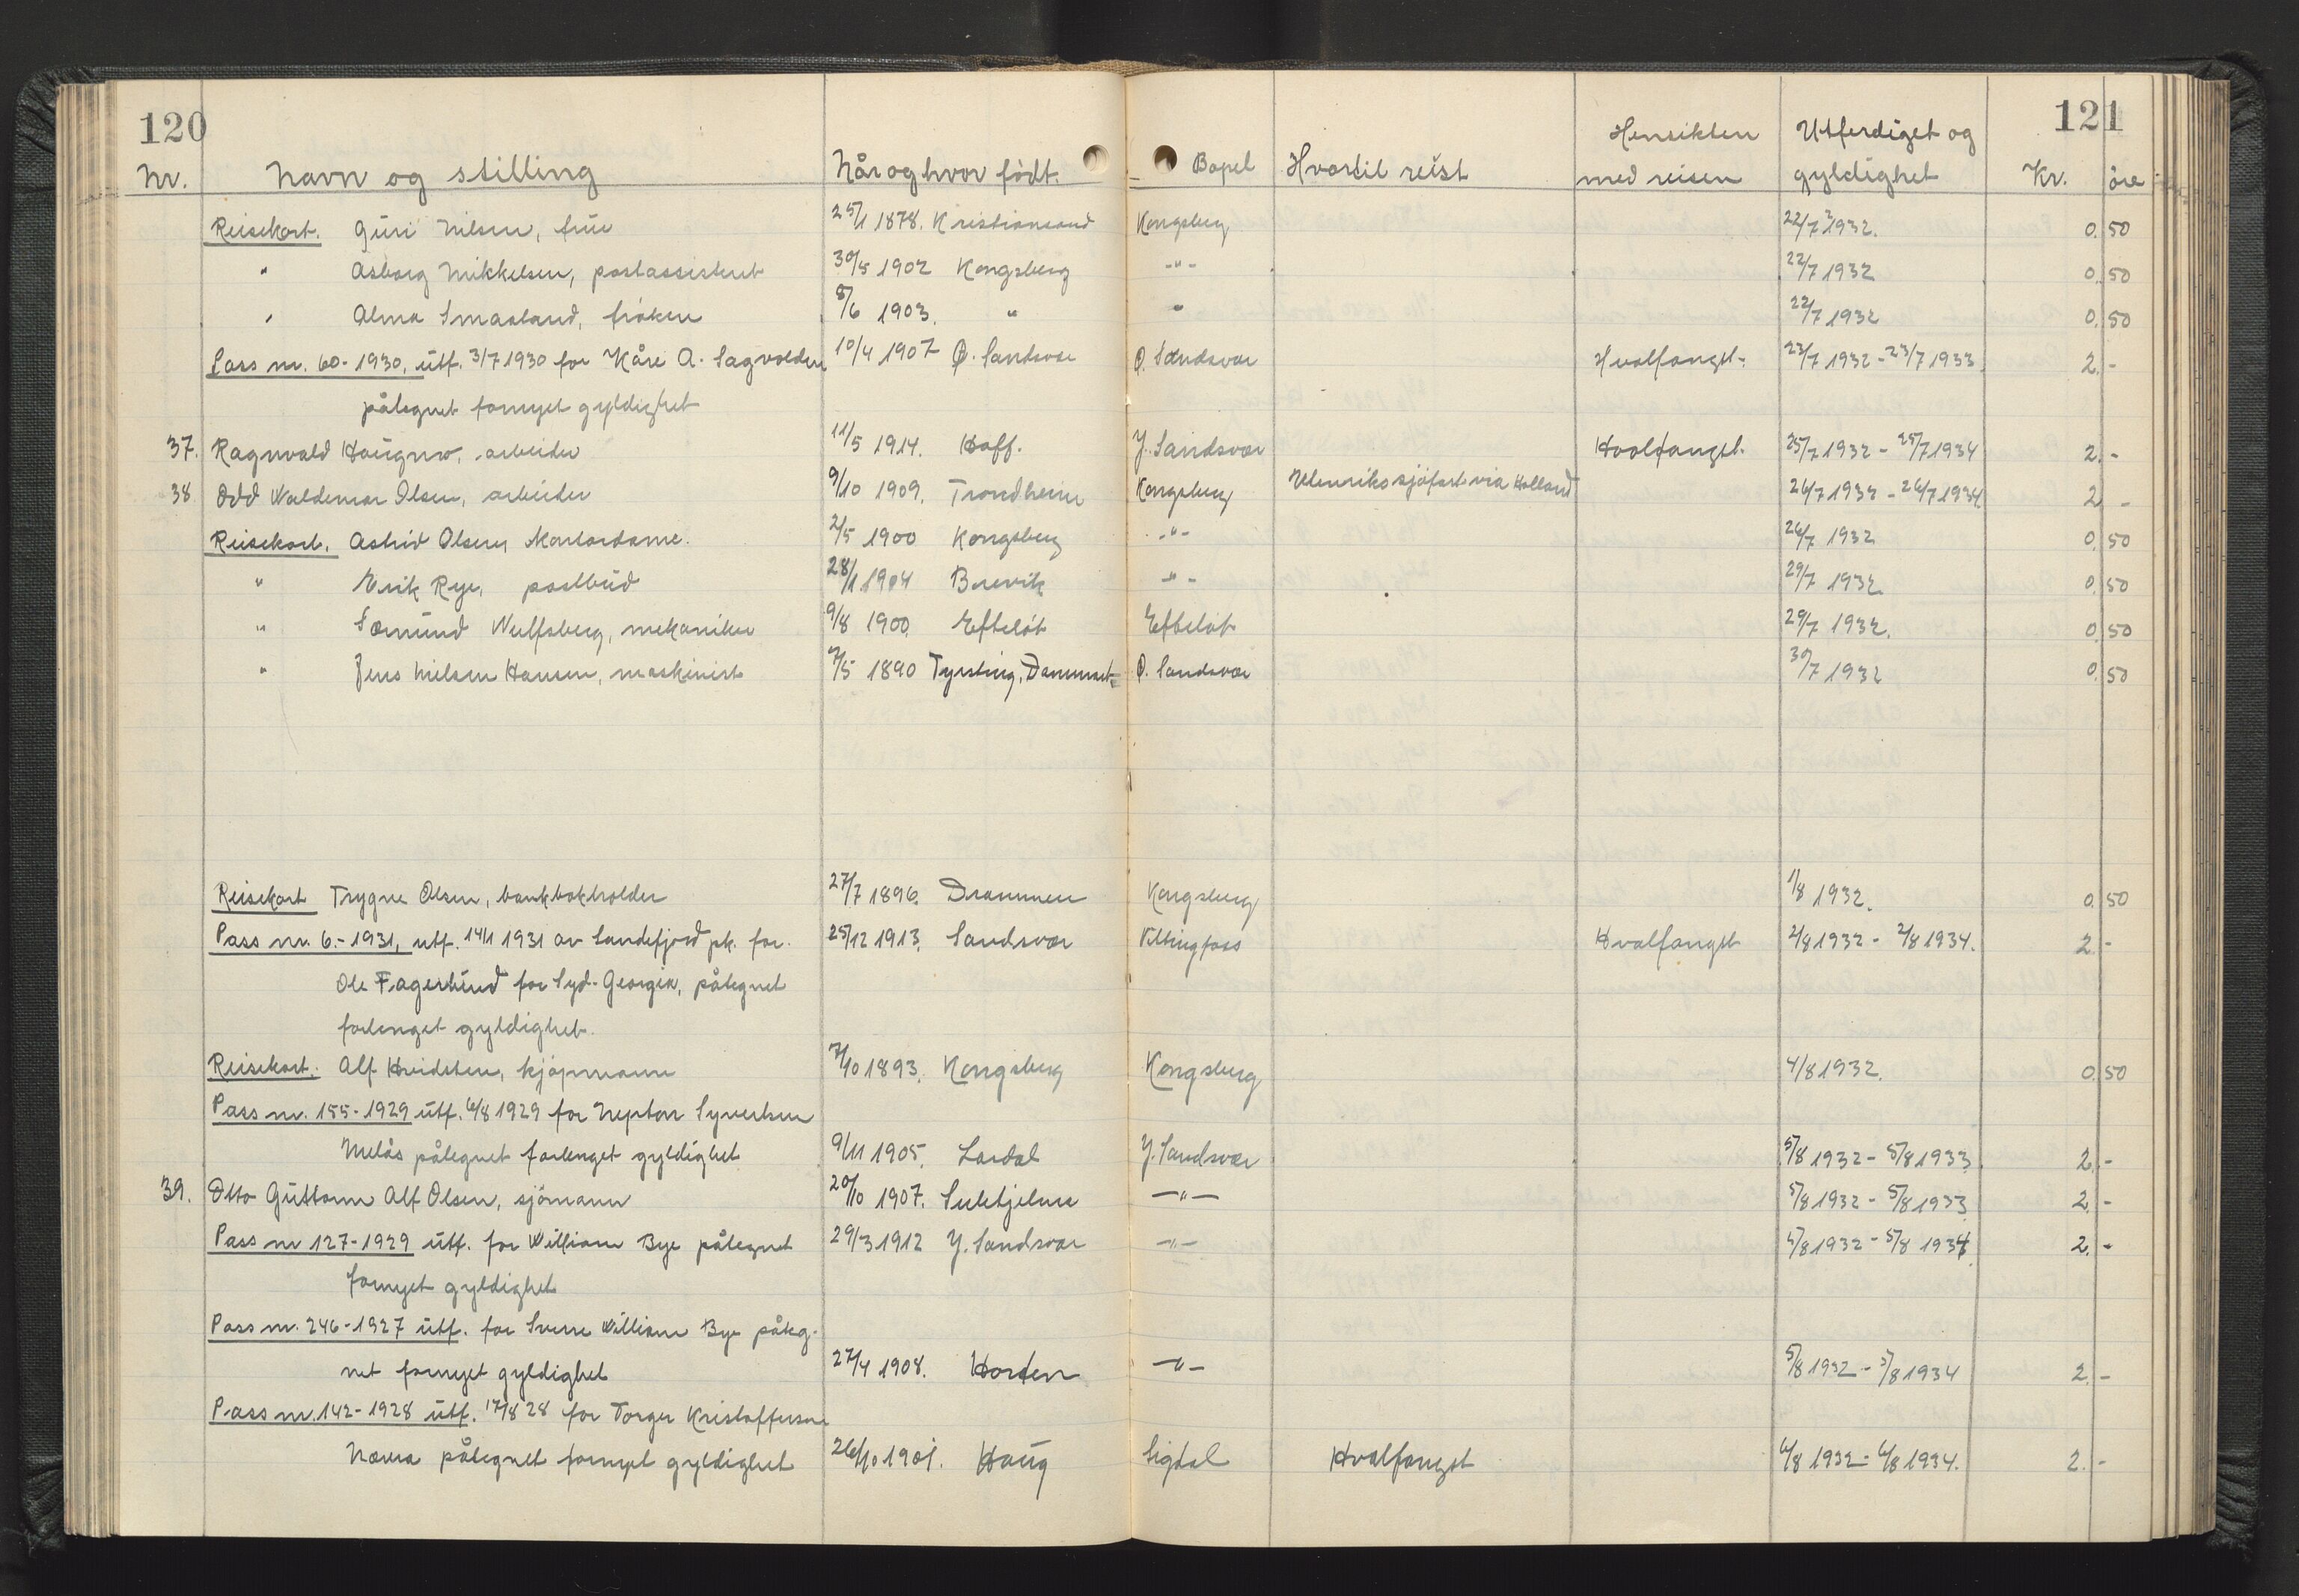 120 121
Nr. Navn og stilling Når og hvor født. Bopel Hvortil reist Hensikten med reisen Utferdiget og gyldighet Kr. öre
Reisekort. Guri Nilsen, frue 25/1 1878. Kristiansand Kongsberg 22/7 1932. 0. 50
" Åsborg Mikkelsen, postassistent 30/5 1902 Kongsberg -"- 22/7 1932 0. 50
" Alma Smaaland, fröken 8/6 1903. " " 22/7 1932 0. 50
Pass nr. 60-1930, utf. 3/7 1930 for Kåre A. Sagvolden 10/4 1907 Ø. Sandsvær Ø. Sandsvær Hvalfangst. 23/7 1932 - 23/7 1933. 2. -
påtegnet fornyet gyldighet
37. Ragnvald Haugnæs, arbeider 11/5 1914. Hoff. Y. Sandsvær Hvalfangst. 25/7 1932 - 25/7 1934 2. -
38 Odd Waldemar Olsen, arbeider 9/10 1909. Trondheim Kongsberg Utenriks sjöfart via Holland 26/7 1932 - 26/7 1934. 2 -
Reisekort. Astrid Olsen, kontordame. 2/5 1900 Kongsberg -"- 26/7 1932 0. 50
" Erik Rye, postbud 28/1 1904 Brevik -"- 29/7 1932. 0. 50
" Sæmund Wulfsberg, mekaniker 9/8 1900. Efteløt Efteløt 29/7 1932. 0. 50
" Jens Nielsen Hansen, maskinist 7/5 1890 Tyrsting, Danmark Ø. Sandsvær 30/7 1932 0. 50
Reisekort Trygve Olsen, bankbokholder 27/7 1896. Drammen Kongsberg 1/8 1932. 0. 50
Pass nr. 6.-1931, utf. 14/1 1931 av Sandefjord pk. for. 25/12 1913. Sandsvær Vittingfoss Hvalfangst 2/8 1932 - 2/8 1934. 2 -
Ole Fagerlund for Syd-Georgia, påtegnet
forlenget gyldighet.
Reisekort. Alf Hvidsten, kjöpmann 7/10 1893. Kongsberg Kongsberg 4/8 1932. 0. 50
Pass nr. 155-1929 utf. 6/8 1929 for Nepton Syvertsen
Melås påtegnet forlenget gyldighet 9/11 1905. Lardal Y. Sandsvær 5/8 1932 - 5/8 1933. 2. -
39. Otto Guttorm Alf Olsen, sjömann 20/10 1907. Sulitjelma -"- 5/8 1932 - 5/8 1933. 2. -
Pass nr 127-1929 utf. for William Bye påtegnet 29/3 1912 Y. Sandsvær -"- 5/8 1932 - 5/8 1934. 2. -
fornyet gyldighet
Pass nr. 246-1927 utf. for Sverre William Bye påteg-
net fornyet gyldighet 27/4 1908. Horten -"- 5/8 1932 - 5/8 1934 2. -
Pass nr. 142-1928 utf. 17/8 28 for Torger Kristoffersen
påtegnet fornyet gyldighet 26/10 1901. Haug Sigdal Hvalfangst 6/8 1932 - 6/8 1934. 2. -